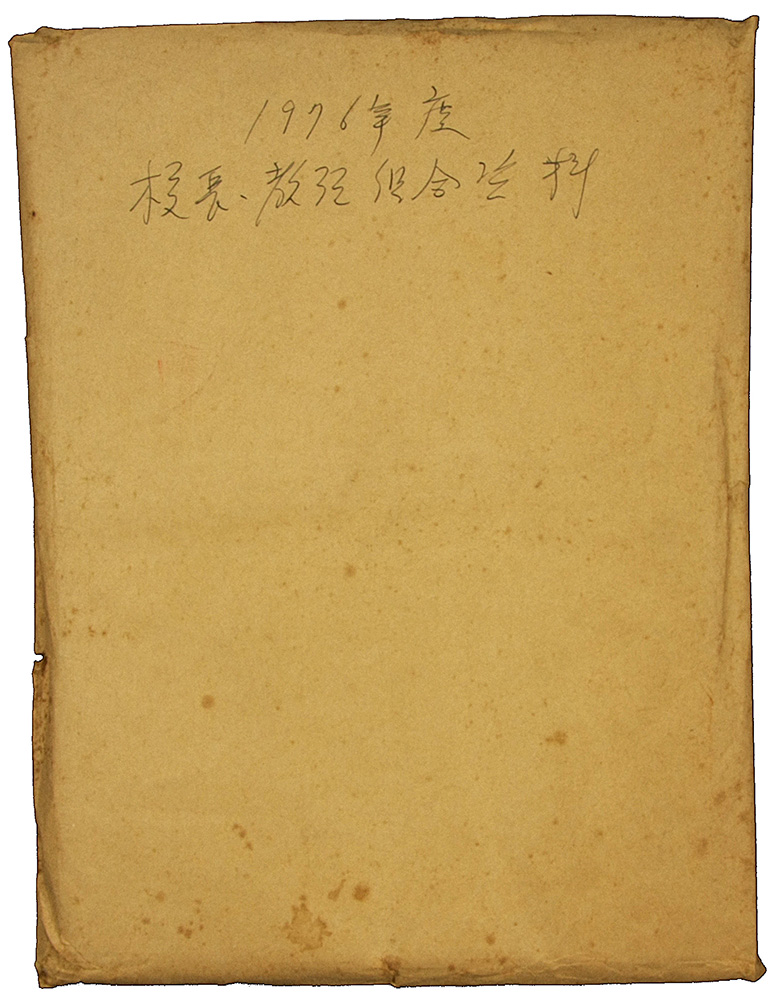 1976年度
校長、教頭組合資料